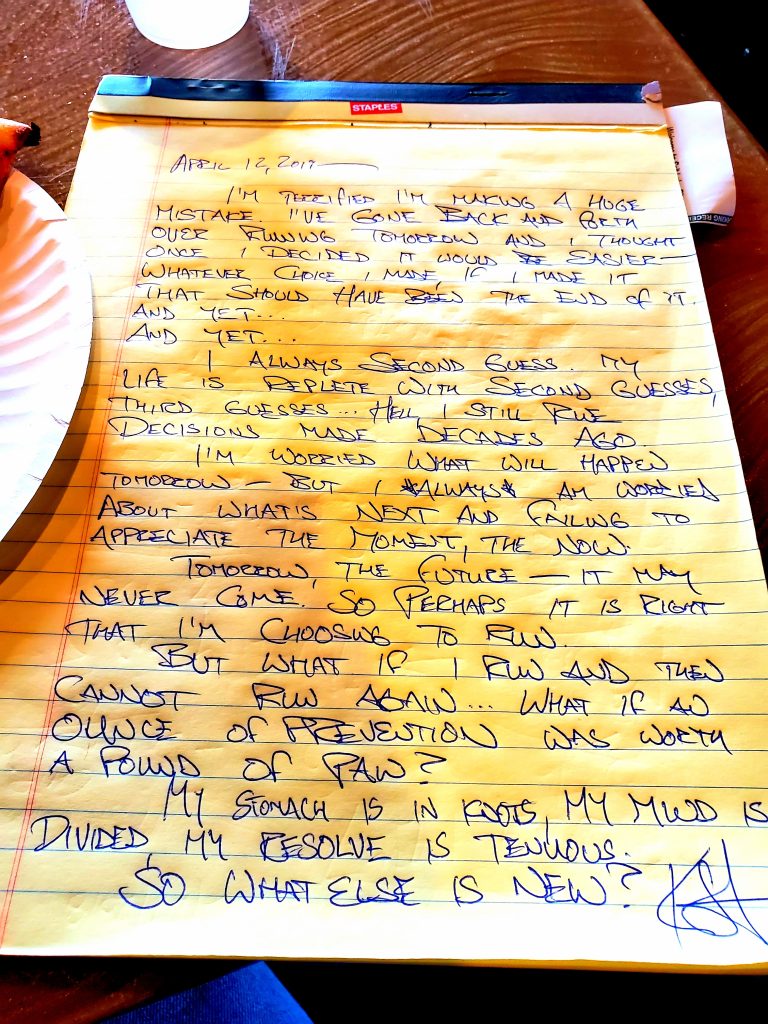 STAPLES
APRIL 12, 2019
I'M TERRIFIED I'M MAKING A HUGE
MISTAKE. I'VE GONE BACK AND FORTH
OVER RUNNING TOMORROW AND I THOUGHT
ONCE I DECIDED IT WOULD BE EASIER—
WHATEVER CHOICE I MADE, IF I MADE IT
THAT SHOULD HAVE BEEN THE END OF IT.
AND YET...
AND YET...
I ALWAYS SECOND GUESS. MY
LIFE IS REPLETE WITH SECOND GUESSES,
THIRD GUESSES... HELL, I STILL RUE
DECISIONS MADE DECADES AGO.
I'M WORRIED WHAT WILL HAPPEN
TOMORROW — BUT I *ALWAYS* AM WORRIED
ABOUT WHAT'S NEXT AND FAILING TO
APPRECIATE THE MOMENT, THE NOW.
TOMORROW, THE FUTURE — IT MAY
NEVER COME. SO PERHAPS IT IS RIGHT
THAT I'M CHOOSING TO RUN.
BUT WHAT IF I RUN AND THEN
CANNOT RUN AGAIN... WHAT IF AN
OUNCE OF PREVENTION WAS WORTH
A POUND OF PAIN?
MY STOMACH IS IN KNOTS, MY MIND IS
DIVIDED, MY RESOLVE IS TENUOUS.
SO WHAT ELSE IS NEW?